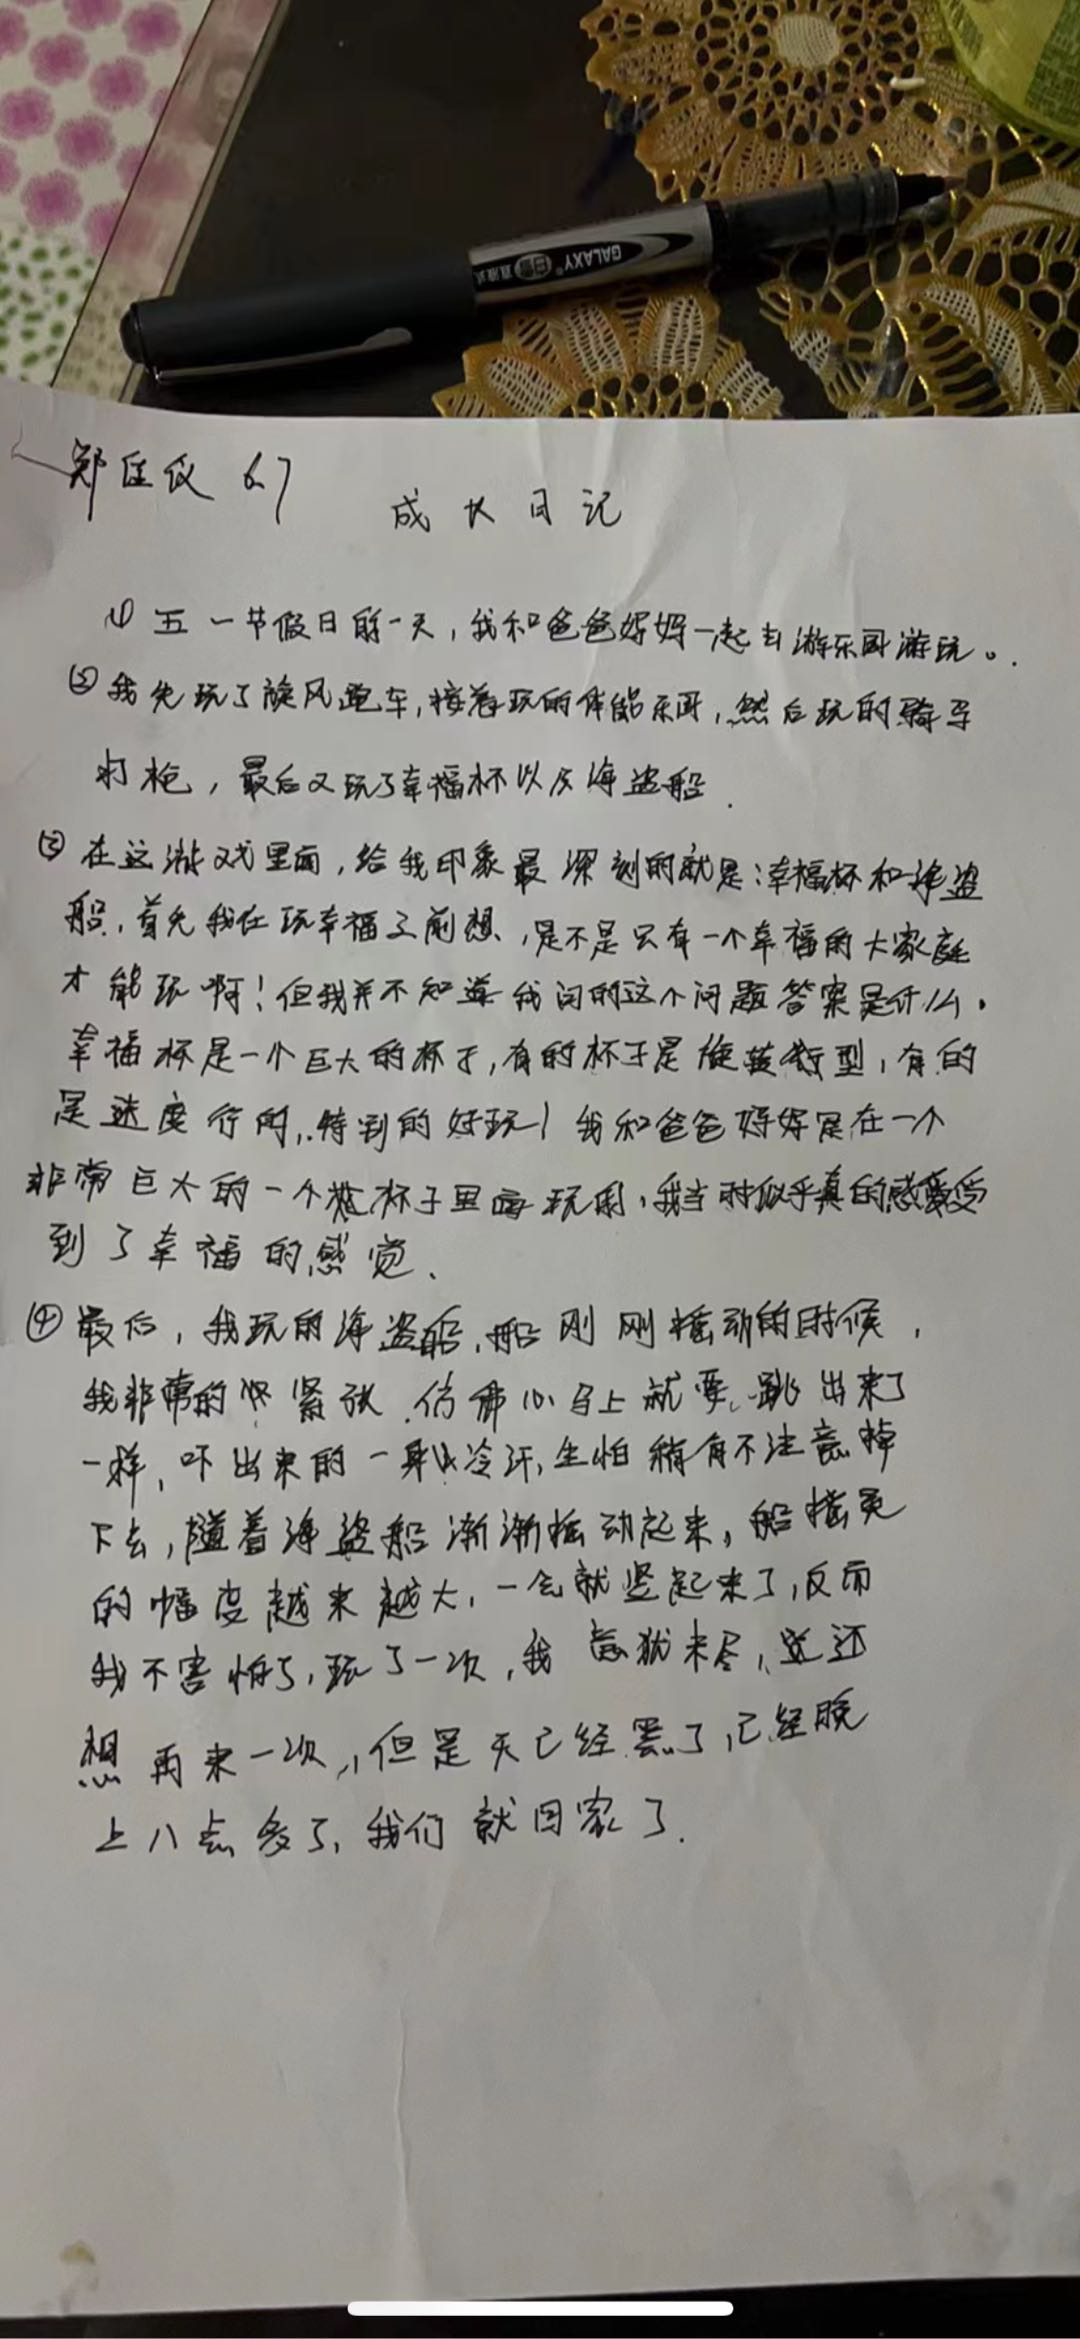 GALAXY
直液式
郑匡仪 6.7
成长日记
① 五一节假日前一天，我和爸爸妈妈一起去游乐园游玩。
② 我先玩了旋风跑车，接着玩的体能乐园，然后玩的骑马
打枪，最后又玩了幸福杯以及海盗船.
③ 在这游戏里面，给我印象最深刻的就是：幸福杯和海盗
船，首先我在玩幸福之前想，是不是只有一个幸福的大家庭
才能玩啊！但我并不知道我问的这个问题答案是什么。
幸福杯是一个巨大的杯子，有的杯子是旋转型，有的
是速度行的，特别的好玩！我和爸爸妈妈是在一个
非常巨大的一个杯子里面玩的，我当时似乎真的感受
到了幸福的感觉、
④ 最后，我玩的海盗船，船刚刚摇动的时候，
我非常的紧张，仿佛心马上就要跳出来了
一样，吓出来的一身冷汗，生怕稍有不注意掉
下去，随着海盗船渐渐摇动起来，船摇晃
的幅度越来越大，一会就竖起来了，反而
我不害怕了，玩了一次，我意犹未尽，还
想再来一次，但是天已经黑了，已经晚
上八点多了，我们就回家了.